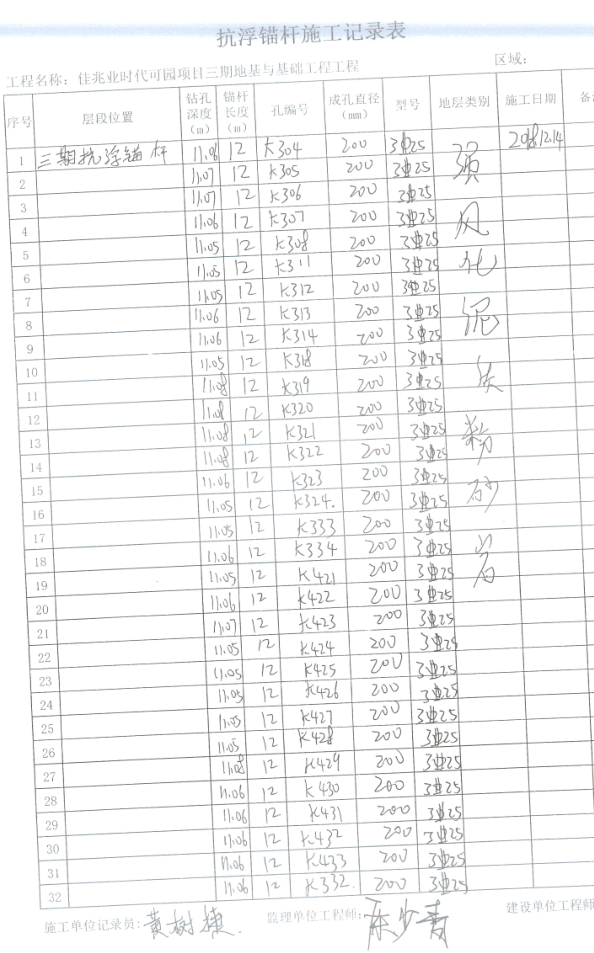 抗浮锚杆施工记录表
工程名称：佳兆业时代可园项目三期地基与基础工程工程 区域：
序号 层段位置 钻孔深度（m） 锚杆长度（m） 孔编号 成孔直径（mm） 型号 地层类别 施工日期 备
1 三期抗浮锚杆 11.06 12 K304 200 3⏀25 强风化泥质粉砂岩 2018.12.14
2 11.07 12 K305 200 3⏀25
3 11.07 12 K306 200 3⏀25
4 11.06 12 K307 200 3⏀25
5 11.05 12 K308 200 3⏀25
6 11.05 12 K311 200 3⏀25
7 11.05 12 K312 200 3⏀25
8 11.06 12 K313 200 3⏀25
9 11.06 12 K314 200 3⏀25
10 11.05 12 K318 200 3⏀25
11 11.08 12 K319 200 3⏀25
12 11.08 12 K320 200 3⏀25
13 11.08 12 K321 200 3⏀25
14 11.08 12 K322 200 3⏀25
15 11.06 12 K323 200 3⏀25
16 11.05 12 K324. 200 3⏀25
17 11.05 12 K333 200 3⏀25
18 11.06 12 K334 200 3⏀25
19 11.05 12 K421 200 3⏀25
20 11.06 12 K422 200 3⏀25
21 11.07 12 K423 200 3⏀25
22 11.05 12 K424 200 3⏀25
23 11.05 12 K425 200 3⏀25
24 11.05 12 K426 200 3⏀25
25 11.05 12 K427 200 3⏀25
26 11.05 12 K428 200 3⏀25
27 11.08 12 K429 200 3⏀25
28 11.06 12 K430 200 3⏀25
29 11.06 12 K431 200 3⏀25
30 11.06 12 K432 200 3⏀25
31 11.06 12 K433 200 3⏀25
32 11.06 12 K332. 200 3⏀25
施工单位记录员：黄树捷. 监理单位工程师：陈少青 建设单位工程师